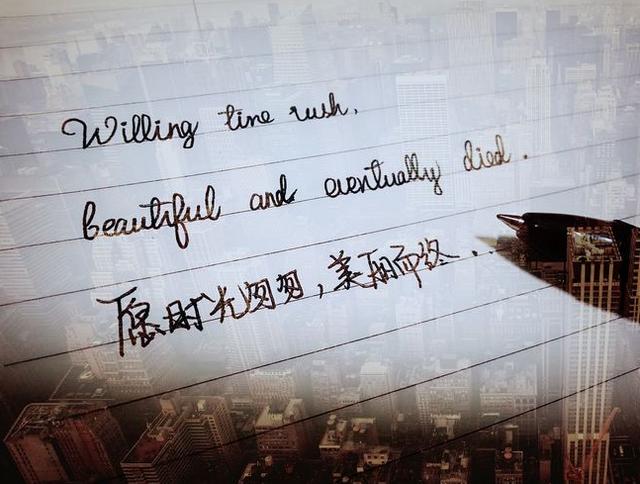 Willing time rush,
beautiful and eventually died.
愿时光匆匆,美丽而终...